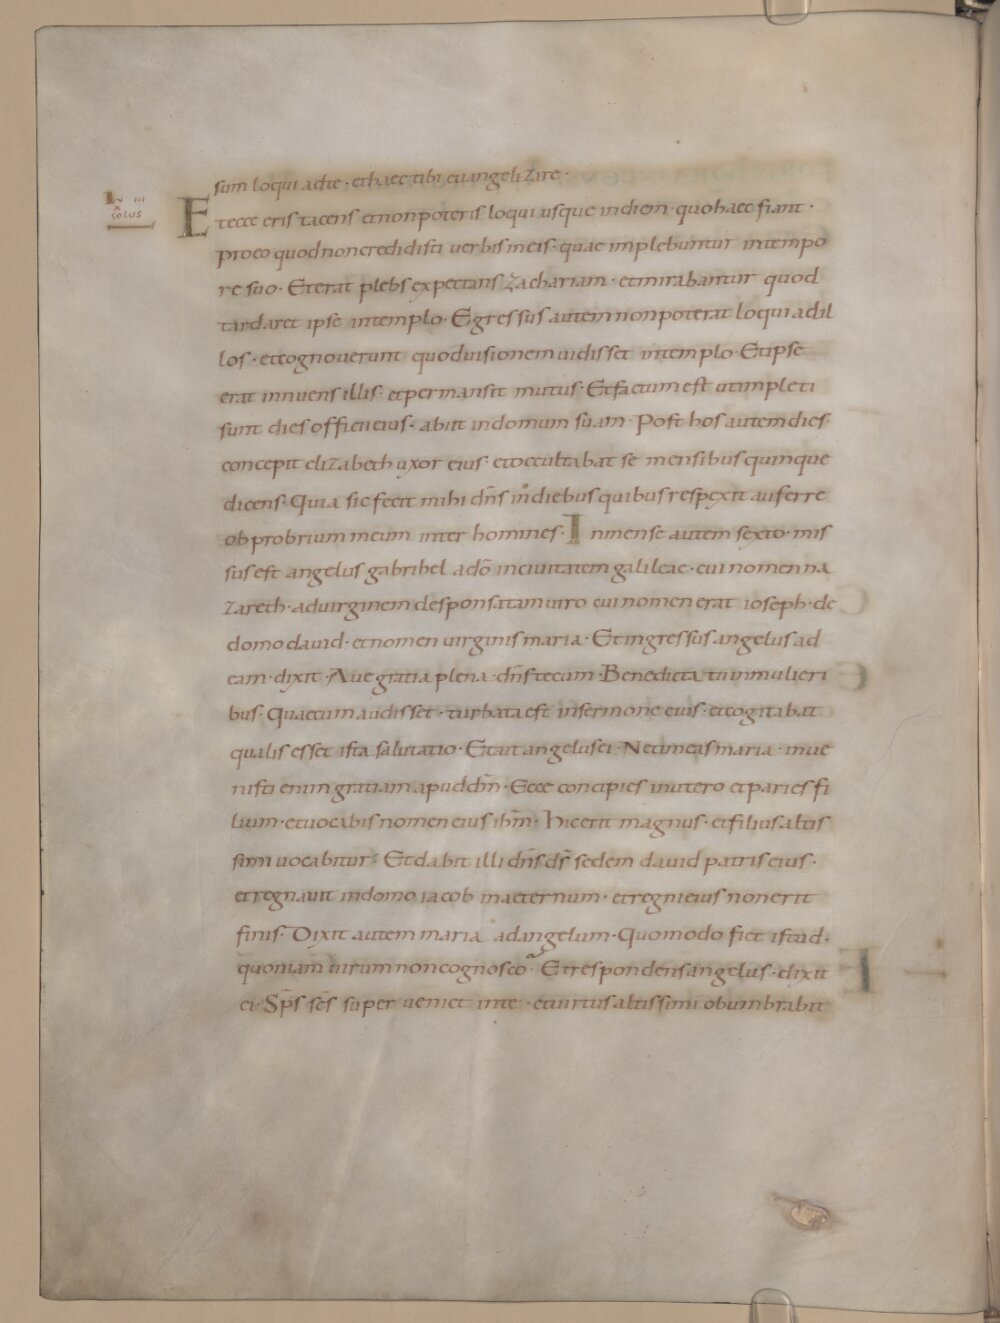 sum loqui adte · ethaec tibi euangelizare ·
III
X
SOLUS
Etecce eris tacens etnonpoteris loqui usque indiem · quohaec fiant ·
proeo quodnoncredidisti uerbismeis · quae implebuntur intempo
re suo · Eterat plebs expectans zachariam · etmirabantur quod
tardaret ipse intemplo · Egressus autem nonpoterat loqui adil
los · etcognouerunt quoduisionem uidisset intemplo · Etipse
erat innuens illis · etpermansit mutus · Etfactum est utimpleti
sunt dies officii eius · abiit indomum suam · Post hos autem dies ·
concepit elizabeth uxor eius · etoccultabat se mensibus quinque
dicens · Quia sic fecit mihi dn̄s indiebus quibus respexit auferre
obprobrium meum inter homines · Inmense autem sexto · mis
sus est angelus gabrihel adō inciuitatem galileae · cui nomen na
zareth · aduirginem desponsatam uiro cui nomen erat ioseph · de
domo dauid · etnomen uirginis maria · Etingressus angelus ad
eam · dixit · Aue gratia plena · dn̄s tecum · Benedicta tu inmulieri
bus · Quaecum audisset · turbata est insermone eius · etcogitabat
qualis esset ista salutatio · Etait angelus ei · Netimeas maria · inue
nisti enim gratiam apud dm̄ · Ecce concipies inutero etparies fi
lium · etuocabis nomen eius ihm̄ · hicerit magnus · etfilius altis
simi uocabitur · Etdabit illi dn̄s ds̄ sedem dauid patris eius ·
etregnauit indomo iacob inaeternum · etregni eius nonerit
finis · Dixit autem maria adangelum · Quomodo fiet istud ·
quoniam uirum noncognosco · Etrespondens angelus · dixit
ei · Sp̄s sc̄s superueniet inte · etuirtus altissimi obumbrabit